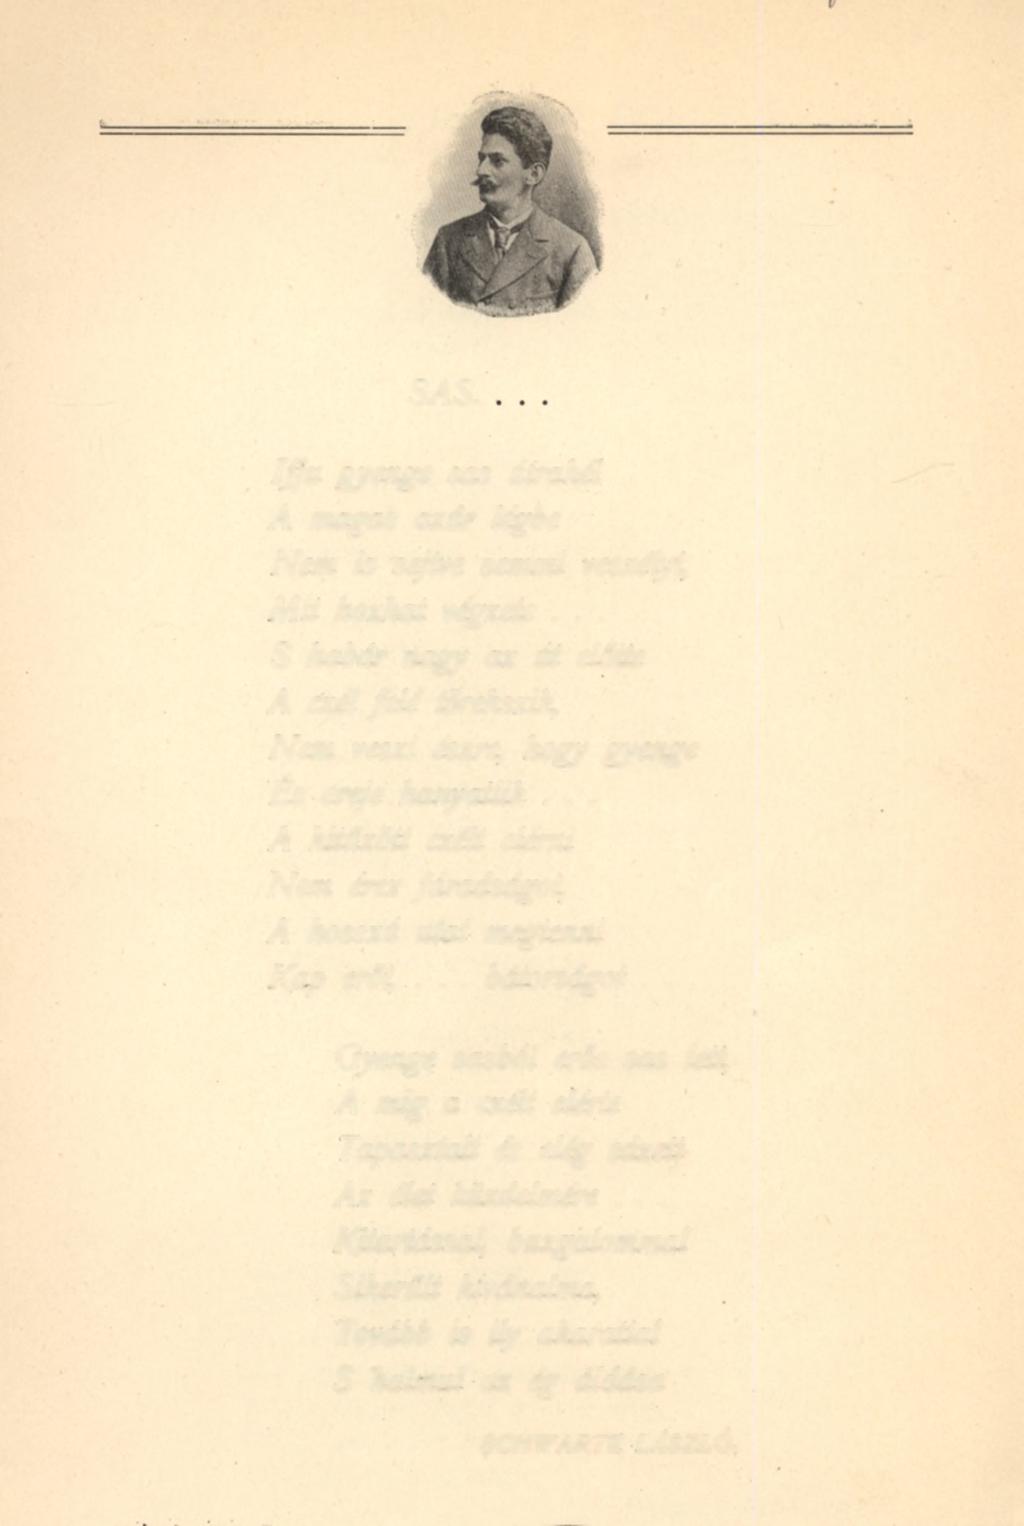 SAS. . . .
Ifju gyenge sas
A magas
Nem is sejtve semmi veszélyt,
Mit hozhat végzete . . .
S habár nagy az út előtte
A czél felé törekszik,
Nem veszi észre, hogy gyenge
És ereje hanyatlik . . .
A kitűzött czélt elérni
Nem érez fáradságot,
A hosszú utat megtenni
Kap erőt, . . . bátorságot

Gyenge sasból erős sas lett,
A míg a czélt elérte
Tapasztalt és elég edzett
Az élet küzdelmére . . .
Kitartással, buzgalommal
Sikerült kívánalma,
Tovább is ily akarattal
S az ég áldása
SCHWARTZ LÁSZLÓ.